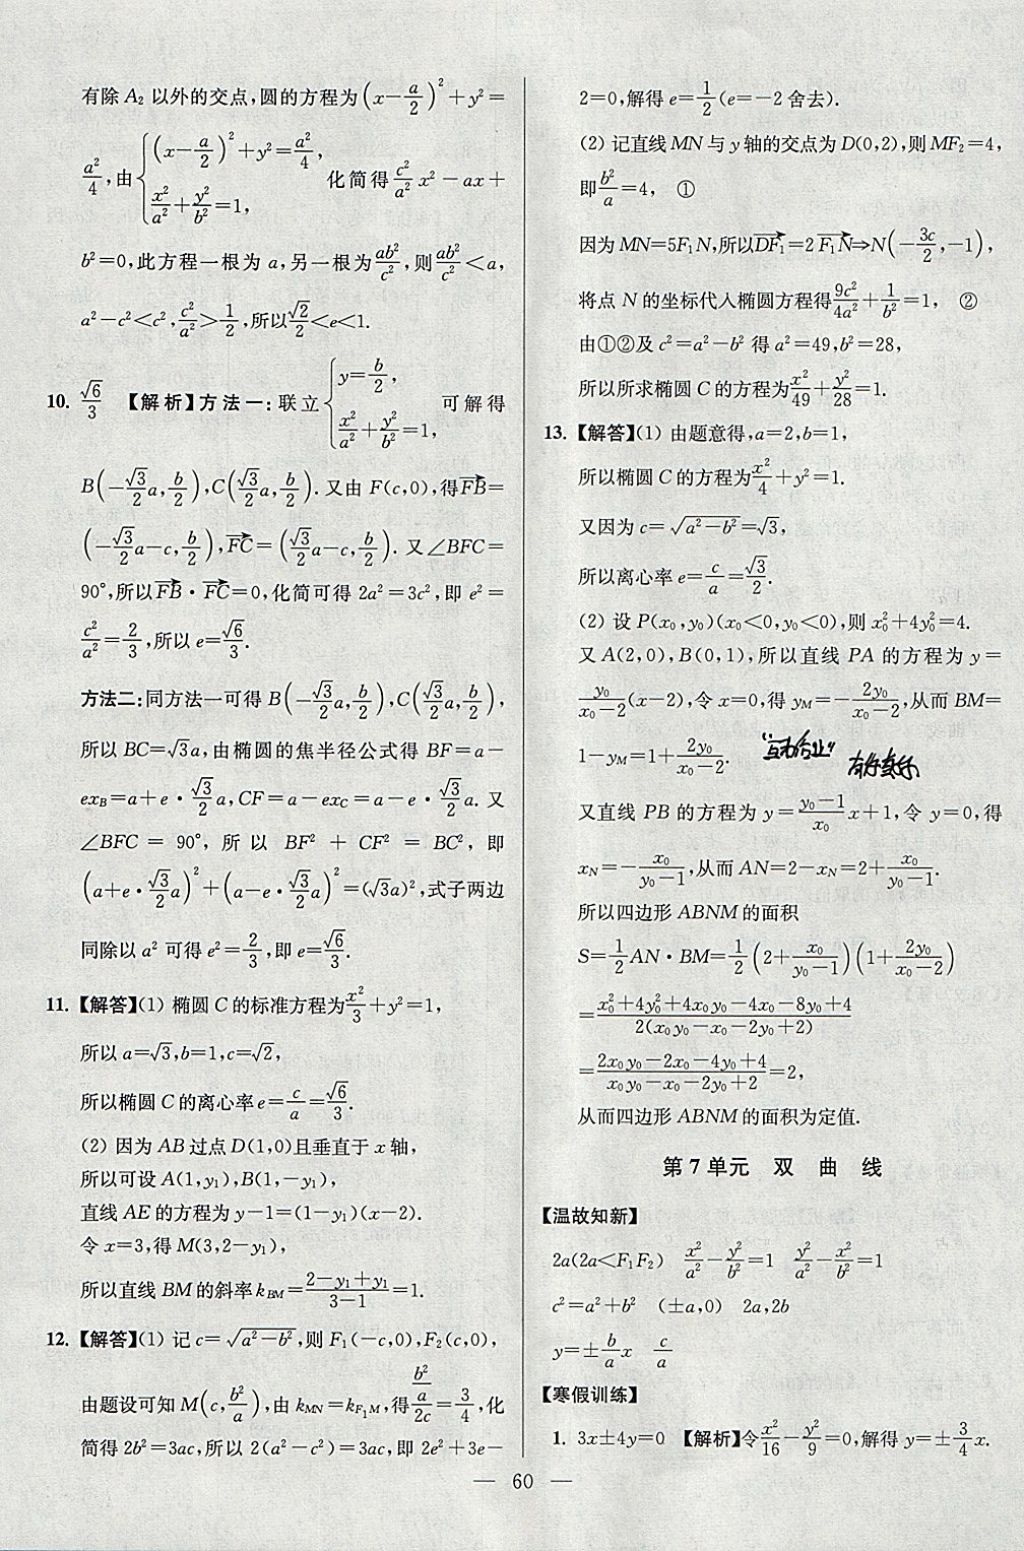 有除 A₂ 以外的交点,圆的方程为(x−a/2)²+y²=
a²/4,由{(x−a/2)²+y²=a²/4, x²/a²+y²/b²=1, 化简得c²/a² x²−ax+
b²=0,此方程一根为 a,另一根为ab²/c²,则ab²/c²<a,
a²−c²<c²,c²/a²>1/2,所以√2/2<e<1.
10. √6/3 【解析】方法一:联立{y=b/2, x²/a²+y²/b²=1, 可解得
B(−√3/2a,b/2),C(√3/2a,b/2).又由 F(c,0),得FB→=
(−√3/2a−c,b/2),FC→=(√3/2a−c,b/2).又∠BFC=
90°,所以FB→·FC→=0,化简可得 2a²=3c²,即 e²=
c²/a²=2/3,所以 e=√6/3.
方法二:同方法一可得 B(−√3/2a,b/2),C(√3/2a,b/2),
所以 BC=√3a,由椭圆的焦半径公式得 BF=a−
ex_B=a+e·√3/2a,CF=a−ex_C=a−e·√3/2a.又
∠BFC=90°,所以 BF²+CF²=BC²,即
(a+e·√3/2a)²+(a−e·√3/2a)²=(√3a)²,式子两边
同除以 a² 可得 e²=2/3,即 e=√6/3.
11.【解答】(1) 椭圆 C 的标准方程为x²/3+y²=1,
所以 a=√3,b=1,c=√2,
所以椭圆 C 的离心率 e=c/a=√6/3.
(2) 因为 AB 过点 D(1,0)且垂直于 x 轴,
所以可设 A(1,y₁),B(1,−y₁),
直线 AE 的方程为 y−1=(1−y₁)(x−2).
令 x=3,得 M(3,2−y₁),
所以直线 BM 的斜率 k_BM=(2−y₁+y₁)/(3−1)=1.
12.【解答】(1) 记 c=√(a²−b²),则 F₁(−c,0),F₂(c,0),
由题设可知 M(c,b²/a),由 k_MN=k_F₁M,得(b²/a)/2c=3/4,化
简得 2b²=3ac,所以 2(a²−c²)=3ac,即 2e²+3e−
2=0,解得 e=1/2(e=−2 舍去).
(2) 记直线 MN 与 y 轴的交点为 D(0,2),则 MF₂=4,
即b²/a=4, ①
因为 MN=5F₁N,所以DF₁→=2 F₁N→⇒N(−3c/2,−1),
将点 N 的坐标代人椭圆方程得9c²/4a²+1/b²=1, ②
由①②及 c²=a²−b² 得 a²=49,b²=28,
所以所求椭圆 C 的方程为x²/49+y²/28=1.
13.【解答】(1) 由题意得,a=2,b=1,
所以椭圆 C 的方程为x²/4+y²=1.
又因为 c=√(a²−b²)=√3,
所以离心率 e=c/a=√3/2.
(2) 设 P(x₀,y₀)(x₀<0,y₀<0),则 x₀²+4y₀²=4.
又 A(2,0),B(0,1),所以直线 PA 的方程为 y=
y₀/(x₀−2)(x−2),令 x=0,得 y_M=−2y₀/(x₀−2),从而 BM=
1−y_M=1+2y₀/(x₀−2).
又直线 PB 的方程为 y=(y₀−1)/x₀ x+1,令 y=0,得
x_N=−x₀/(y₀−1),从而 AN=2−x_N=2+x₀/(y₀−1).
所以四边形 ABNM 的面积
S=1/2 AN·BM=1/2(2+x₀/(y₀−1))(1+2y₀/(x₀−2))
=(x₀²+4y₀²+4x₀y₀−4x₀−8y₀+4)/2(x₀y₀−x₀−2y₀+2)
=(2x₀y₀−2x₀−4y₀+4)/(x₀y₀−x₀−2y₀+2)=2,
从而四边形 ABNM 的面积为定值.
第 7 单元 双 曲 线
【温故知新】
2a(2a<F₁F₂) x²/a²−y²/b²=1 y²/a²−x²/b²=1
c²=a²+b² (±a,0) 2a,2b
y=±b/a x c/a
【寒假训练】
1. 3x±4y=0 【解析】令x²/16−y²/9=0,解得 y=±3/4 x.
— 60 —